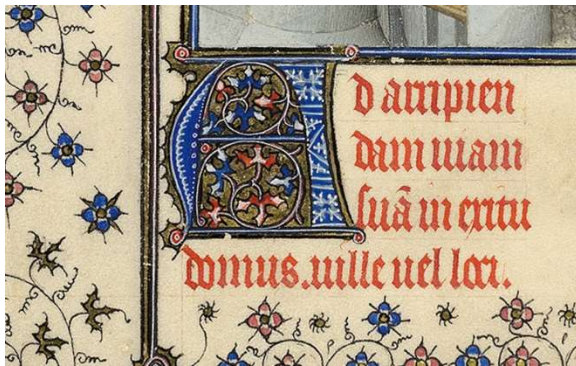 Ad arripien
dam uiam
suā in exitu
domus. uille uel loci.